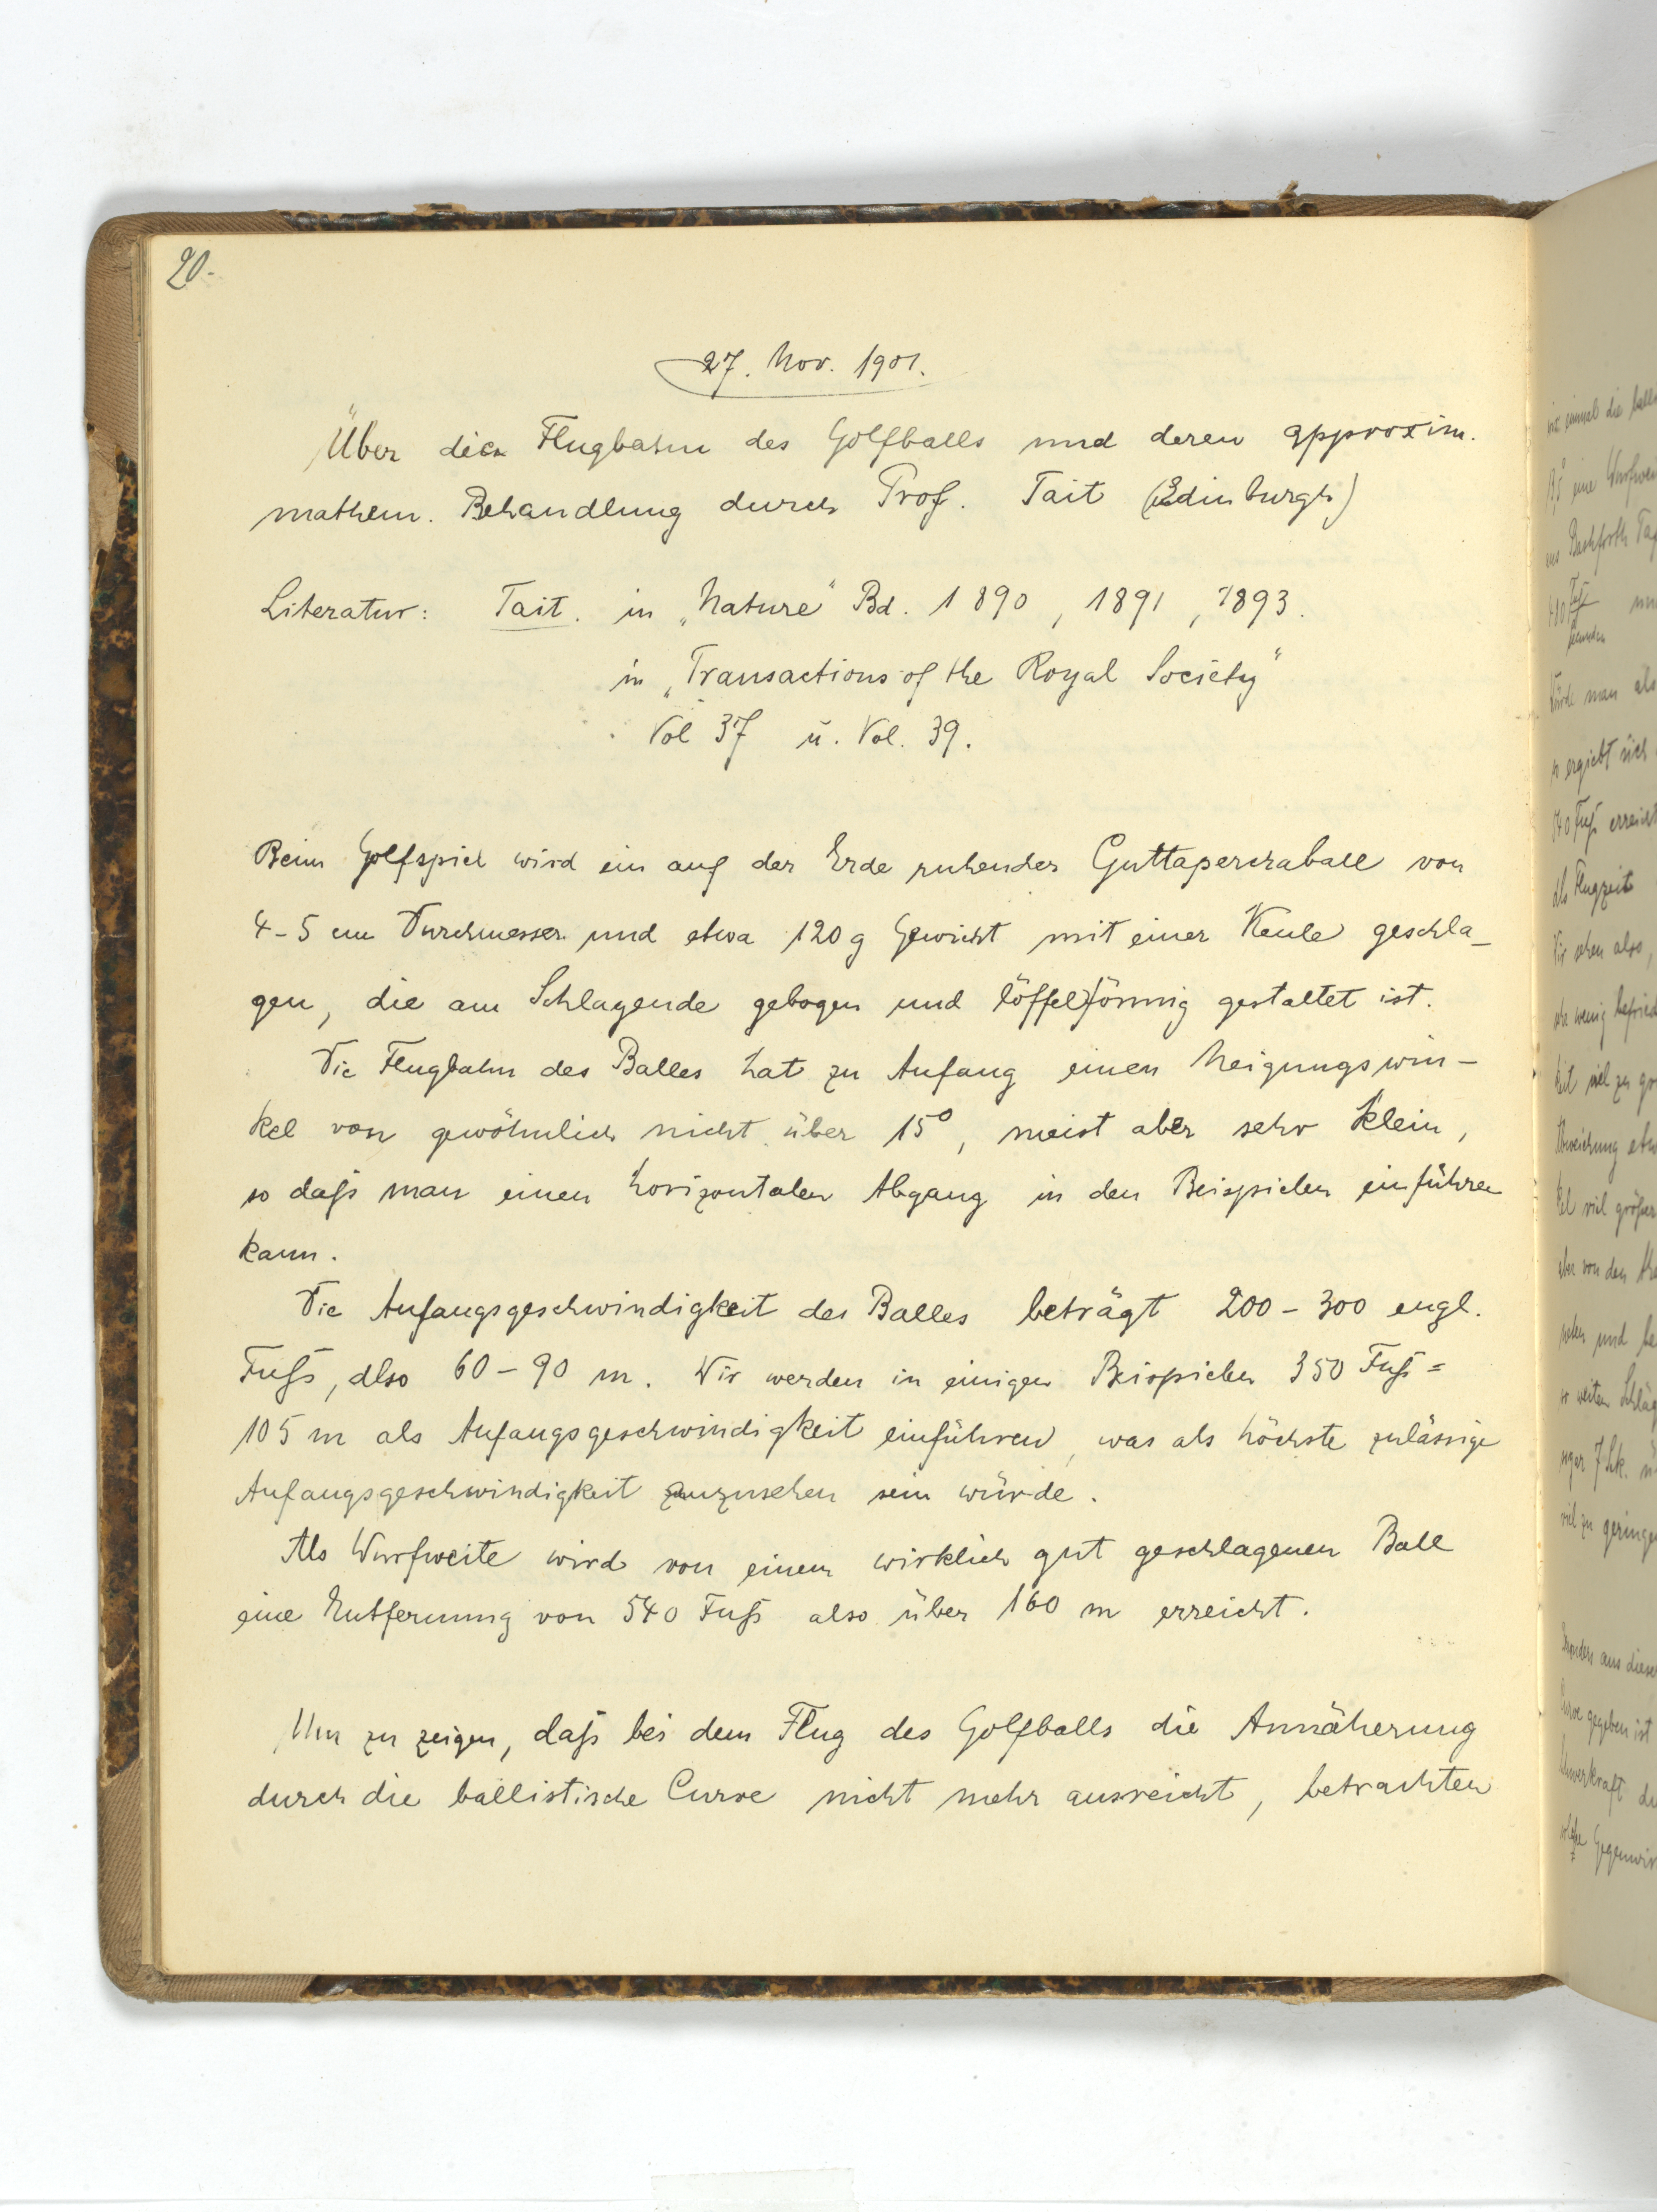 20.
27. Nov. 1901.
Über die Flugbahn des Golfballs und deren approxim.
mathem. Behandlung durch Prof. Tait (Edinburgh)
Literatur: Tait. in „Nature“ Bd. 1890, 1891, 1893.
in „Transactions of the Royal Society“
Vol 37 u. Vol. 39.
Beim Golfspiel wird ein auf der Erde ruhender Guttaperchaball von
4-5 cm Durchmesser und etwa 120 g Gewicht mit einer Keule geschla-
gen, die am Schlagende gebogen und löffelförmig gestaltet ist.
Die Flugbahn des Balles hat zu Anfang einen Neigungswin-
kel von gewöhnlich nicht über 15°, meist aber sehr klein,
so daß man einen horizontalen Abgang in den Beispielen einführen
kann.
Die Anfangsgeschwindigkeit des Balles beträgt 200-300 engl.
Fuß, also 60-90 m. Wir werden in einigen Beispielen 350 Fuß =
105 m als Anfangsgeschwindigkeit einführen, was als höchste zulässige
Anfangsgeschwindigkeit anzusehen sein würde.
Als Wurfweite wird von einem wirklich gut geschlagenen Ball
eine Entfernung von 540 Fuß also über 160 m erreicht.
Um zu zeigen, daß bei dem Flug des Golfballs die Annäherung
durch die ballistische Curve nicht mehr ausreicht, betrachten